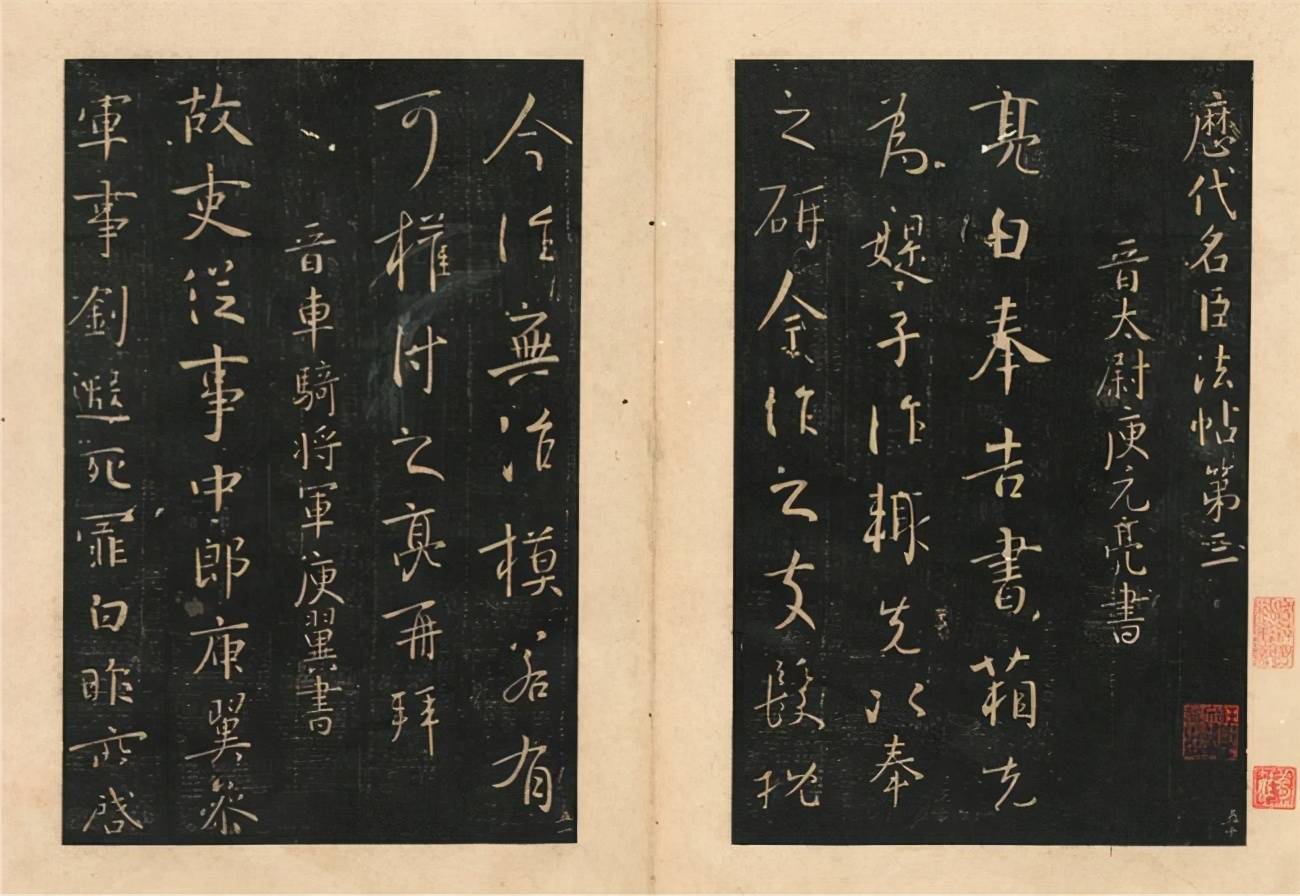 歷代名臣法帖第三
晉太尉庾元亮書
亮白奉告書箱先
為媞子作輒先以奉
之研金作之支髮
今無治模若有
可權付之亮再拜
晉車騎將軍庾翼書
故吏從事中郎庾翼參
軍事劉遐死罪白昨所啓